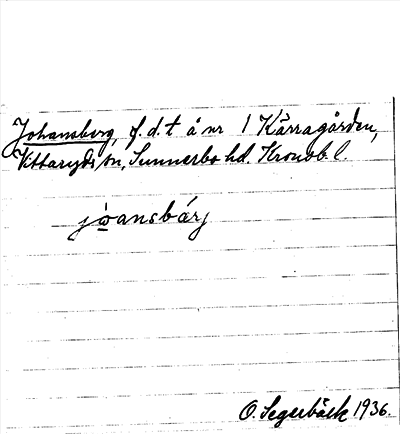 Johansberg, f.d.t å nr 1 Kärragården,
Vittaryds sn, Sunnerbo hd. Kronob. l.
jo̲ansbárj
O. Segerbäck 1936.